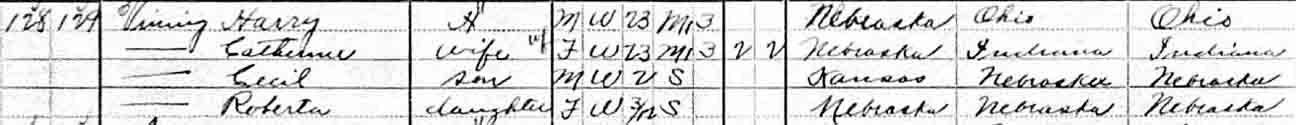 128 129 Vining Harry H M W 23 M1 3 Nebraska Ohio Ohio
— Catherine wife F W 23 M1 3 2 2 Nebraska Indiana Indiana
— Cecil son M W 2 S Kansas Nebraska Nebraska
— Roberta daughter F W 3/12 S Nebraska Nebraska Nebraska